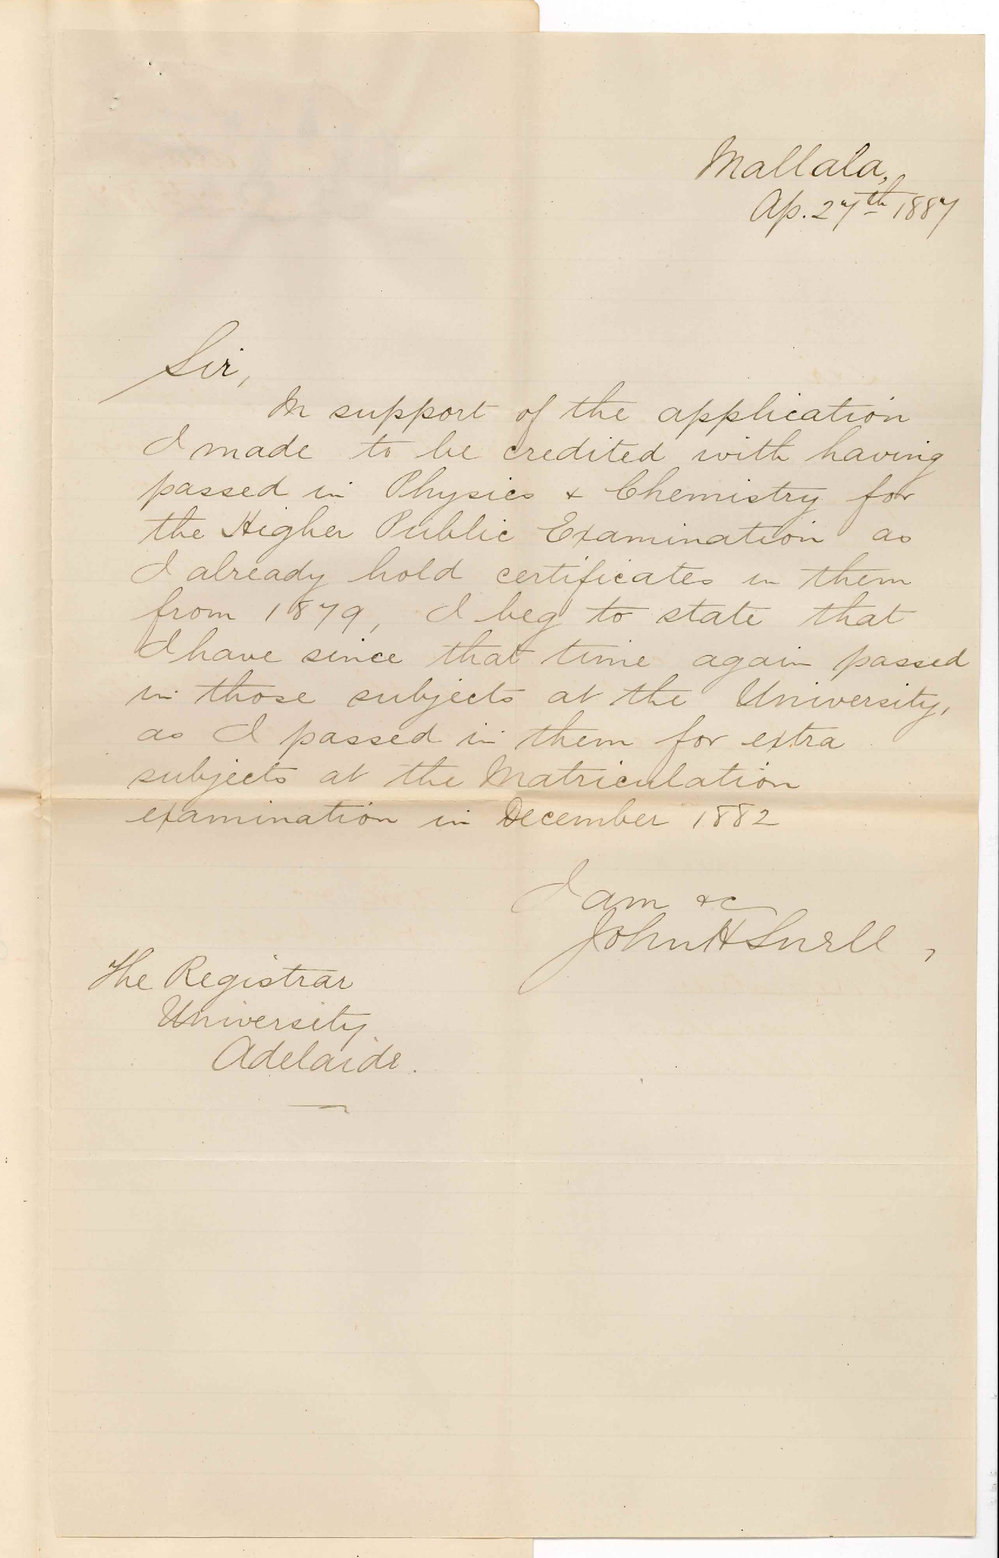 Mallala,
Ap. 27th 1887
Sir,
In support of the application
I made to be credited with having
passed in Physics & Chemistry for
the Higher Public Examination as
I already hold certificates in them
from 1879, I beg to state that
I have since that time again passed
in those subjects at the University,
as I passed in them for extra
subjects at the Matriculation
examination in December 1882
I am &c
John H Snell,
The Registrar
University
Adelaide.